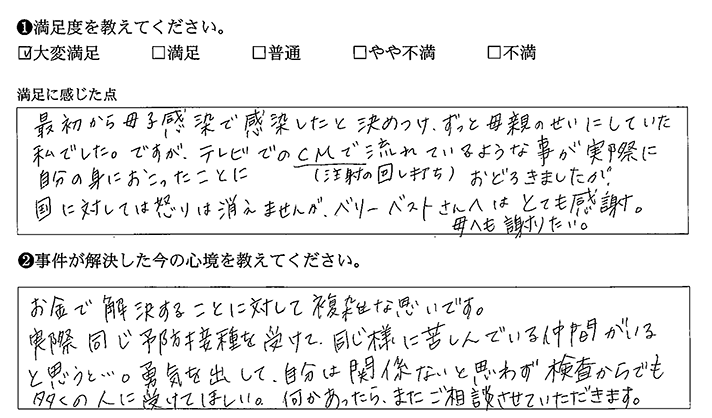 ❶満足度を教えてください。
☑大変満足 □満足 □普通 □やや不満 □不満
満足に感じた点
最初から母子感染で感染したと決めつけ、ずっと母親のせいにしていた
私でした。ですが、テレビでのCMで流れているような事が実際に
自分の身におこったことに (注射の回し打ち) おどろきましたが、
国に対しては怒りは消えませんが、ベリーベストさんへはとても感謝。
母へも謝りたい。
❷事件が解決した今の心境を教えてください。
お金で解決することに対して複雑な思いです。
実際同じ予防接種を受けて、同じ様に苦しんでいる仲間がいる
と思うと…。勇気を出して、自分は関係ないと思わず検査からでも
多くの人に受けてほしい。何かあったら、またご相談させていただきます。